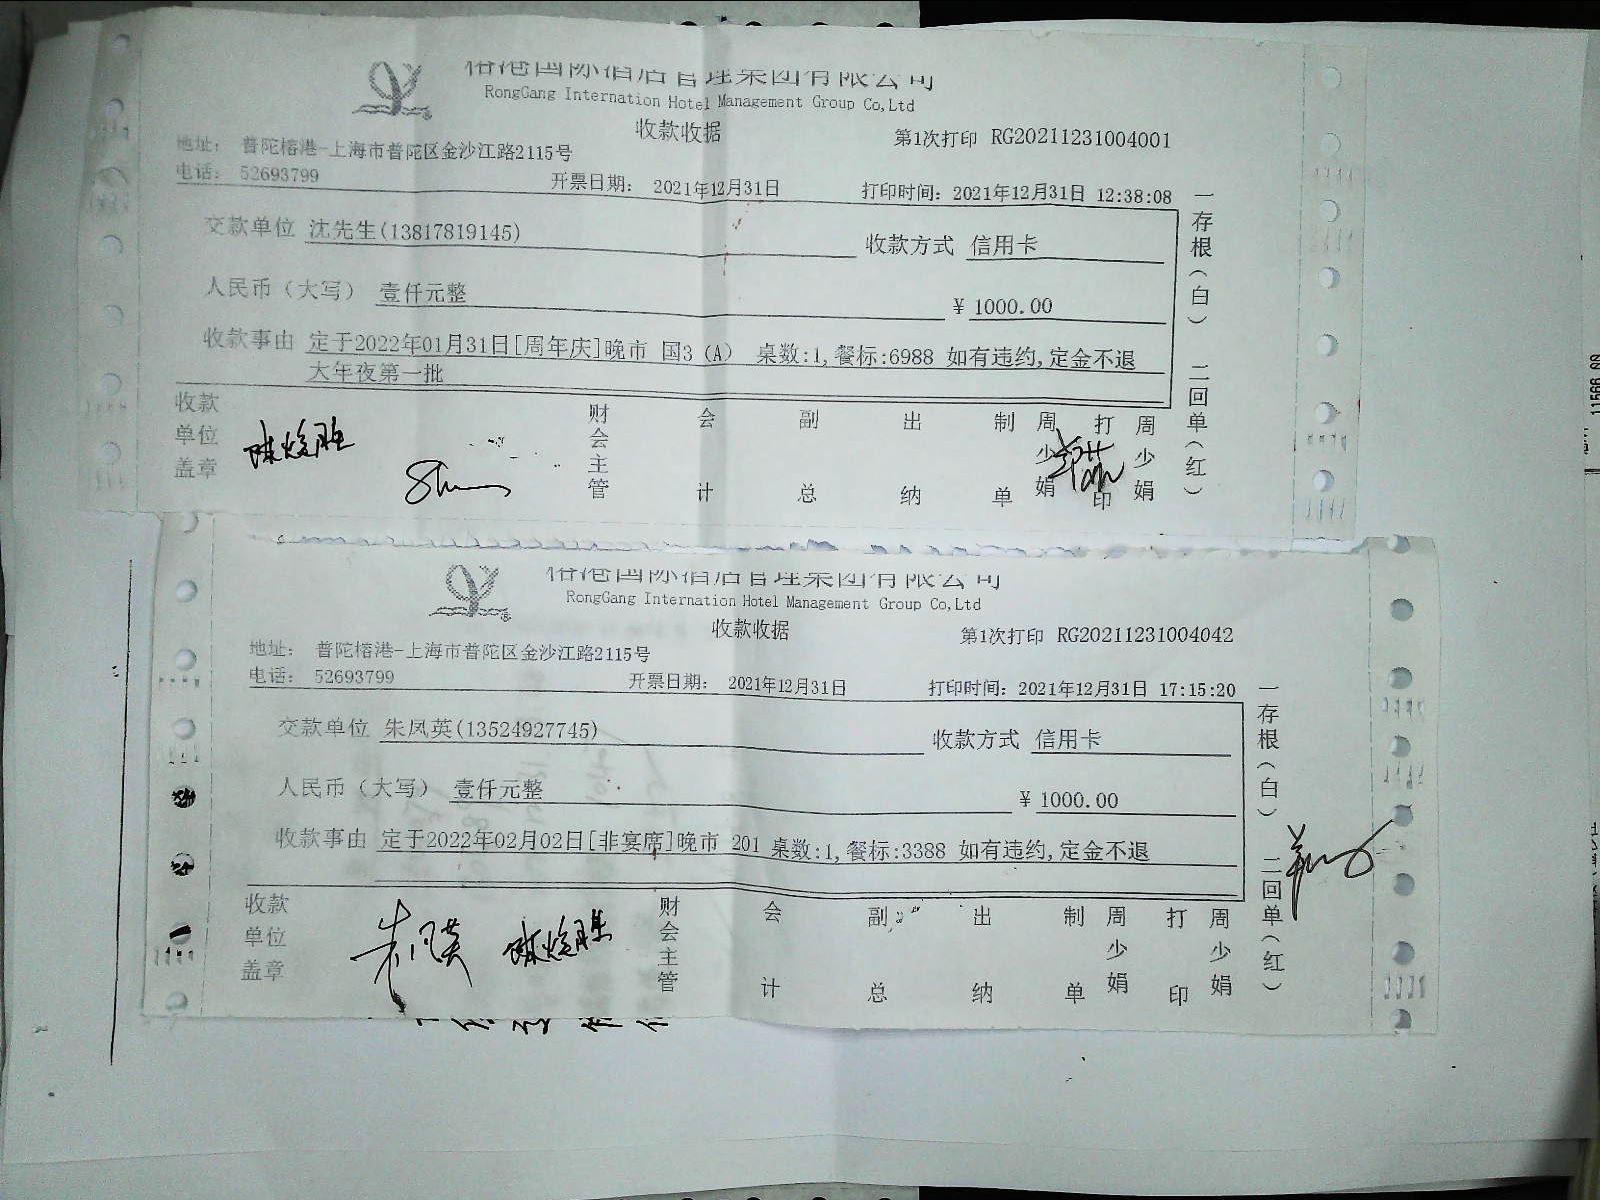 榕港国际酒店管理集团有限公司
RongGang Internation Hotel Management Group Co,Ltd
收款收据
第1次打印 RG20211231004001
地址: 普陀榕港-上海市普陀区金沙江路2115号
电话: 52693799 开票日期: 2021年12月31日 打印时间: 2021年12月31日 12:38:08
交款单位 沈先生(13817819145) 收款方式 信用卡
人民币(大写) 壹仟元整 ¥ 1000.00
收款事由 定于2022年01月31日[周年庆]晚市 国3 (A) 桌数:1,餐标:6988 如有违约,定金不退
大年夜第一批
收款单位盖章 财会主管 会计 副总 出纳 制单 周少娟 打印 周少娟
一存根(白) 二回单(红)
榕港国际酒店管理集团有限公司
RongGang Internation Hotel Management Group Co,Ltd
收款收据
第1次打印 RG20211231004042
地址: 普陀榕港-上海市普陀区金沙江路2115号
电话: 52693799 开票日期: 2021年12月31日 打印时间: 2021年12月31日 17:15:20
交款单位 朱凤英(13524927745) 收款方式 信用卡
人民币(大写) 壹仟元整 ¥ 1000.00
收款事由 定于2022年02月02日[非宴席]晚市 201 桌数:1,餐标:3388 如有违约,定金不退
收款单位盖章 朱凤英 财会主管 会计 副总 出纳 制单 周少娟 打印 周少娟
一存根(白) 二回单(红)
11566.00